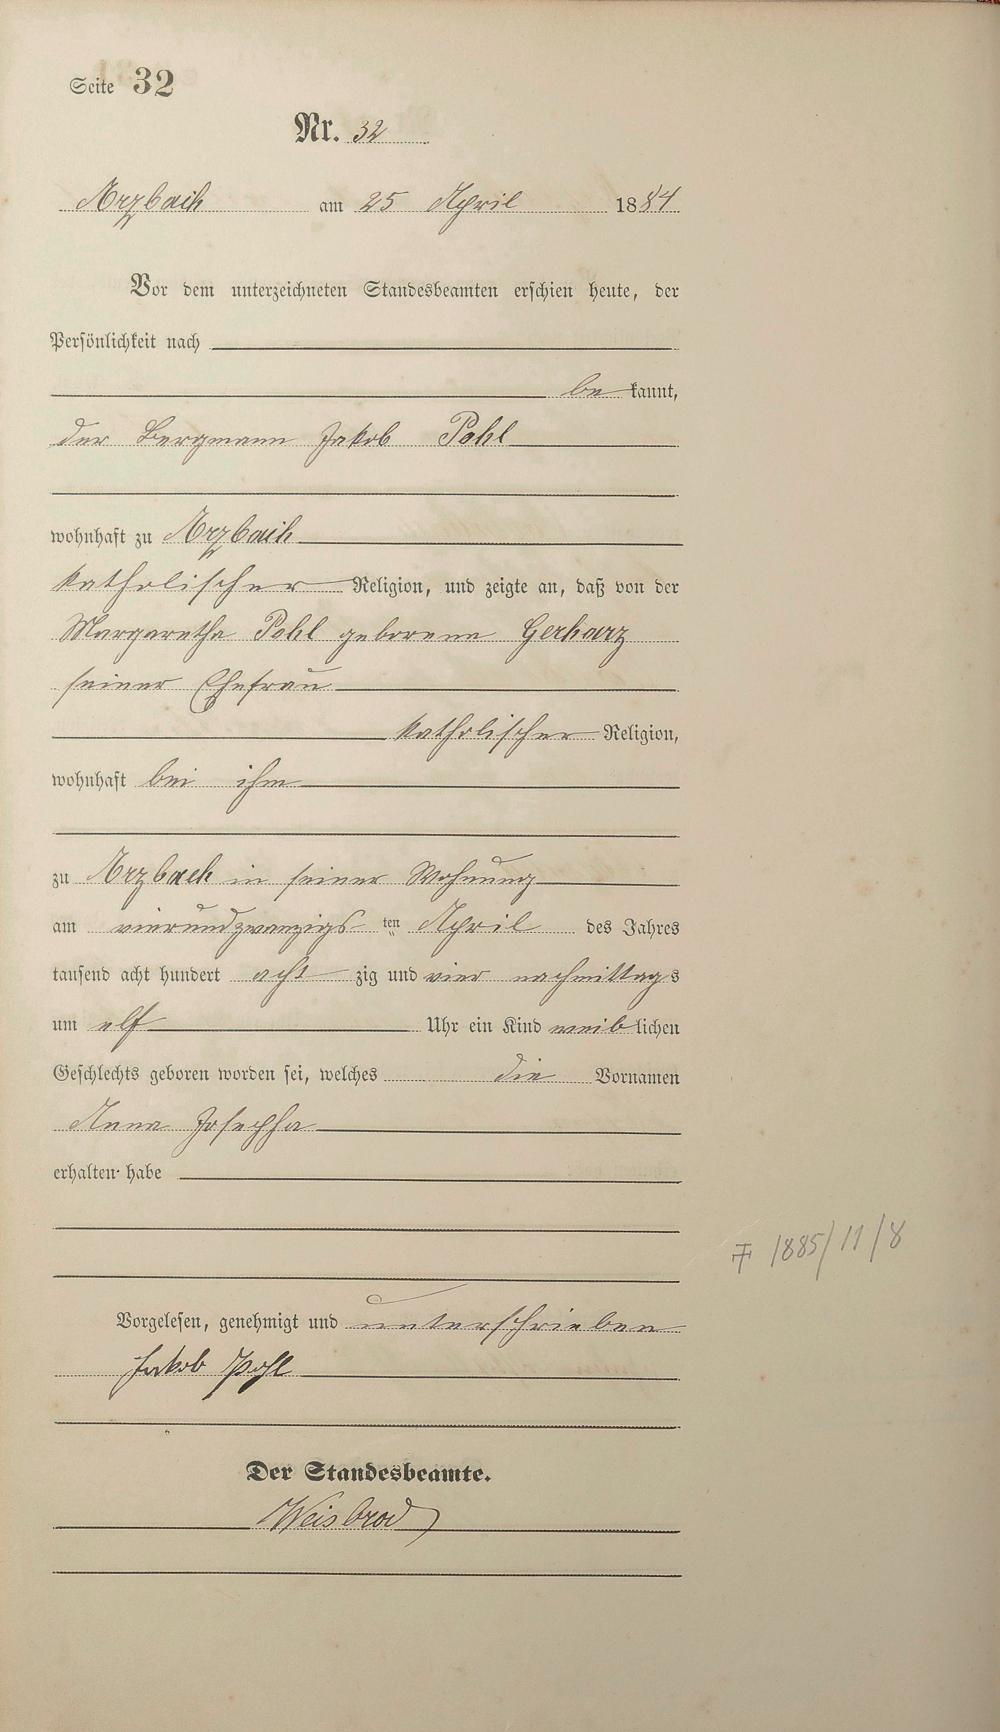 Seite 32
Nr. 32
Arzbach am 25 April 1884
Vor dem unterzeichneten Standesbeamten erschien heute, der
Persönlichkeit nach
be kannt,
der Bergmann Jakob Pohl
wohnhaft zu Arzbach
katholischer Religion, und zeigte an, daß von der
Margaretha Pohl geborene Gerharz
seiner Ehefrau
katholischer Religion,
wohnhaft bei ihm
zu Arzbach in seiner Wohnung
am vierundzwanzigs ten April des Jahres
tausend acht hundert acht zig und vier nachmittags
um elf Uhr ein Kind weib lichen
Geschlechts geboren worden sei, welches die Vornamen
Anna Josepha
erhalten habe
1885/11/8
Vorgelesen, genehmigt und unterschrieben
Jakob Pohl
Der Standesbeamte.
Weisbrod